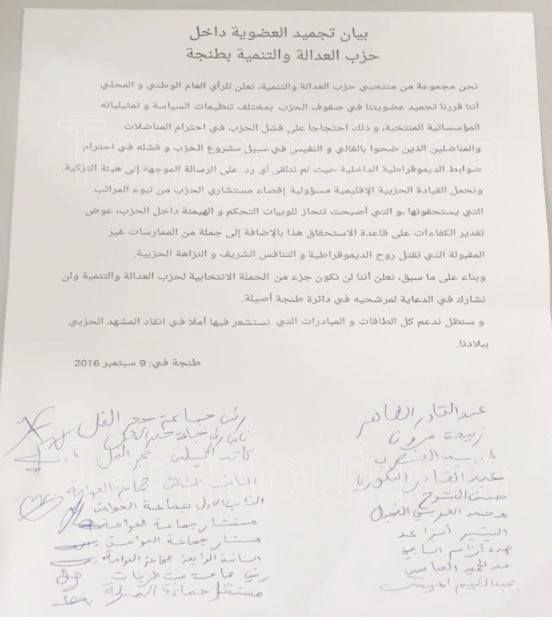 بيان تجميد العضوية داخل
حزب العدالة والتنمية بطنجة
نحن مجموعة من منتخبي حزب العدالة والتنمية، نعلن للرأي العام الوطني و المحلي
أننا قررنا تجميد عضويتنا في صفوف الحزب بمختلف تنظيمات السياسة و تمثيلياته
المؤسساتية المنتخبة، و ذلك احتجاجا على فشل الحزب في احترام المناضلات
والمناضلين الذين ضحوا بالغالي و النفيس في سبيل مشروع الحزب و فشله في احترام
ضوابط الديموقراطية الداخلية حيث لم نتلقى أي رد على الرسالة الموجهة إلى هيئة التزكية.
ونحمل القيادة الحزبية الإقليمية مسؤولية إقصاء مستشاري الحزب من تبوء المراتب
التي يستحقونها ،و التي أصبحت تنحاز للوبيات التحكم و الهيمنة داخل الحزب، عوض
تقدير الكفاءات على قاعدة الاستحقاق هذا بالإضافة إلى جملة من الممارسات غير
المقبولة التي تقتل روح الديموقراطية و التنافس الشريف و النزاهة الحزبية.
وبناء على ما سبق، نعلن أننا لن نكون جزء من الحملة الانتخابية لحزب العدالة والتنمية ولن
نشارك في الدعاية لمرشحيه في دائرة طنجة أصيلة.
و سنظل ندعم كل الطاقات و المبادرات التي نستشعر فيها أملا في انقاد المشهد الحزبي
ببلادنا.
طنجة في: 9 سبتمبر 2016
عبد القادر الطاهر رئيس جماعة حجر النحل
زبيدة
كاتب المجلس حجر النحل
عبد القادر النائب الثالث جماعة العوامة
حسن النائب الأول جماعة العوامة
محمد مستشار جماعة العوامة
البشير مستشار جماعة العوامة
النائبة الرابعة جماعة العوامة
عبد الحميد العباسي رئيس جماعة سبت الزينات
عبد الكريم مستشار جماعة المنزلة